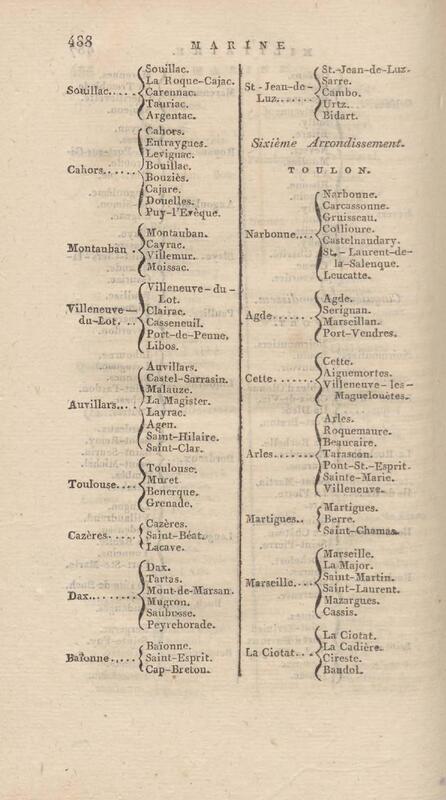 488
MARINE
Souillac.
La Roque-Cajac.
Souillac.... Carennac.
Tauriac.
Argentac.
Cahors.
Entraygues.
Levignac.
Bouillac.
Cahors...... Bouziès.
Cajare.
Douelles.
Puy-l'Evêque.
Montauban.
Montauban . Cayrac.
Villemur.
Moissac.
Villeneuve-du-
Lot.
Villeneuve- Clairac.
du-Lot. .. Casseneuil.
Port-de-Penne.
Libos.
Auvillars.
Castel-Sarrasin.
Malauze.
Auvillars... La Magister.
Layrac.
Agen.
Saint-Hilaire.
Saint-Clar.
Toulouse.
Toulouse.... Muret.
Benerque.
Grenade.
Cazères.
Cazères..... Saint-Béat.
Lacave.
Dax.
Tartas.
Dax........ Mont-de-Marsan.
Mugron.
Saubosse.
Peyrehorade.
Baïonne.
Baïonne..... Saint-Esprit.
Cap-Breton.
St.-Jean-de-Luz.
St-Jean-de- Sarre.
Luz....... Cambo.
Urtz.
Bidart.
Sixième Arrondissement.
TOULON.
Narbonne.
Carcassonne.
Gruisseau.
Narbonne.... Collioure.
Castelnaudary.
St.-Laurent-de-
la-Salenque.
Leucatte.
Agde.
Agde....... Serignan.
Marseillan.
Port-Vendres.
Cette.
Cette....... Aiguemortes.
Villeneuve-les-
Maguelouètes.
Arles.
Roquemaure.
Beaucaire.
Arles....... Tarascon.
Pont-St.-Esprit.
Sainte-Marie.
Villeneuve.
Martigues.
Martigues.. Berre.
Saint-Chamas.
Marseille.
La Major.
Marseille.... Saint-Martin.
Saint-Laurent.
Mazargues.
Cassis.
La Ciotat.
La Ciotat... La Cadière.
Cireste.
Bandol.